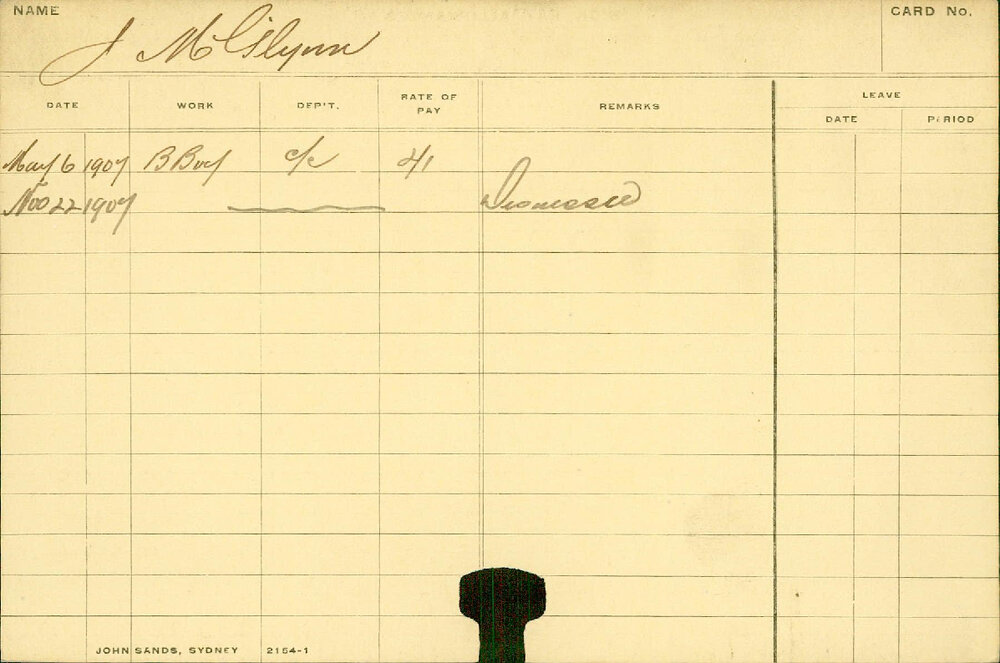 NAME J McGlynn CARD No.
DATE WORK DEP'T. RATE OF PAY REMARKS LEAVE
DATE PERIOD
May 6 1907 B Boy c/c 4/
Nov 22 1907 Dismissed
JOHN SANDS, SYDNEY 2154-1